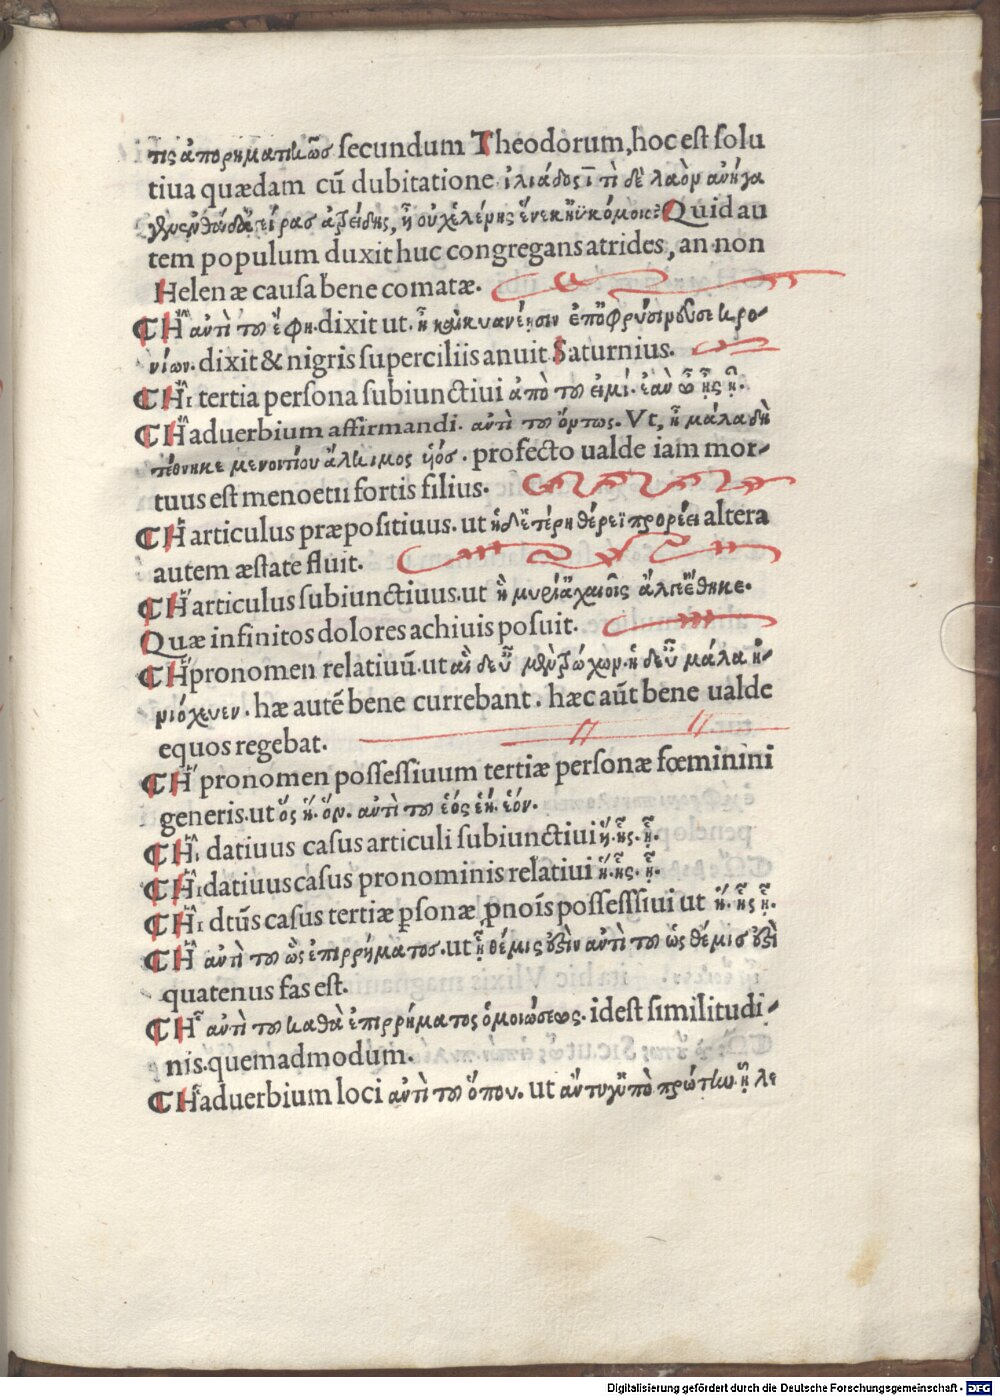 τις ἀπορηματικῶσ secundum Theodorum, hoc est solu
tiua quædam cū dubitatione ἰλιάδος ῑ τὶ δὲ λαὸν ἀνήγα
ἀτρείδης, ἢ οὐχ ἑλένης ἕνεκ ἠϋκόμοιο Quid au
tem populum duxit huc congregans atrides, an non
Helenæ causa bene comatæ.
¶ Ἦ ἀντὶ του ἔφη. dixit ut. ἦ καὶ κυανέησιν ἐπ ὀφρύσι νεῦσε κρο-
νίων. dixit & nigris superciliis anuit Saturnius.
¶ Ηι tertia persona subiunctiui ἀπὸ του εἰμί. ἐὰν ὦ ᾖς ᾖ.
¶ Ἦ aduerbium affirmandi. ἀντὶ του ὄντως. Vt, ἦ μάλα δὴ
τέθνηκε μενοιτίου ἄλκιμος υἱόσ. profecto ualde iam mor-
tuus est menoetii fortis filius.
¶ Ἡ articulus præpositiuus. ut ἡ δ ἑτέρη θέρεϊ προρέει altera
autem æstate fluit.
¶ Ἣ articulus subiunctiuus. ut ἣ μυρί ἀχαιοῖς ἄλγε ἔθηκε.
Quæ infinitos dolores achiuis posuit.
¶ Ἡ pronomen relatiuū. ut αἱ δ εὖ μὲν ἡ δ εὖ μάλα ἡ-
νιόχευεν. hæ autē bene currebant. hæc aūt bene ualde
equos regebat.
¶ Ἣ pronomen possessiuum tertiæ personæ fœminini
generis. ut ὅς ἥ. ὅν. ἀντὶ του ἑός ἑή. ἑόν.
¶ Ἧι datiuus casus articuli subiunctiui ἥ. ἧς. ᾗ.
¶ Ἧι datiuus casus pronominis relatiui ἥ. ἧς. ᾗ.
¶ Ἧι dtūs casus tertiæ ꝑsonæ ꝓnoīs possesssiui ut ἥ. ἧς ᾗ.
¶ Ἧ ἀντὶ του ὡς ἐπιρρήματος. ut ᾗ θέμις ἐστὶν ἀντὶ του ὡς θέμισ ἐστὶ
quatenus fas est.
¶ Ἧ ἀντὶ του καθὰ ἐπιρρήματος ὁμοιώσεως. idest similitudi-
nis. quemadmodum.
¶ Ἧ aduerbium loci ἀντὶ του ὅπου. ut ἄντυγ ὑπὸ πρώτην ᾗ λε
Digitalisierung gefördert durch die Deutsche Forschungsgemeinschaft - DFG